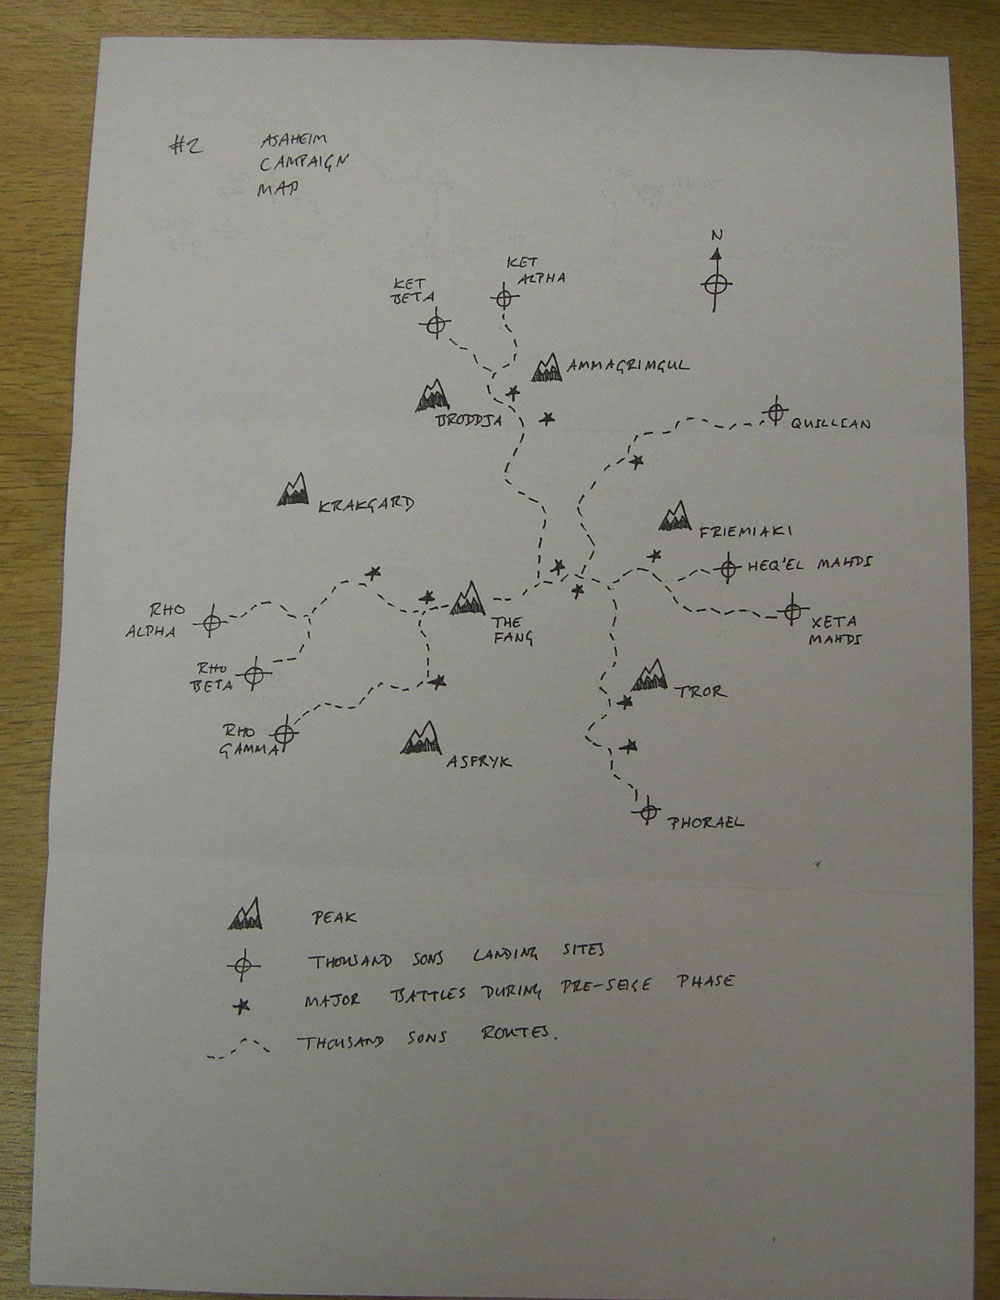 #2
ASAHEIM
CAMPAIGN
MAP
N
KET
ALPHA
KET
BETA
AMMAGRIMGUL
BRODDJA
QUILLIAN
KRAKGARD
FRIEMIAKI
HEQ'EL MAHDI
RHO
ALPHA
THE
FANG
XETA
MAHDI
RHO
BETA
TROR
RHO
GAMMA
ASFRYK
PHORAEL
PEAK
THOUSAND SONS LANDING SITES
MAJOR BATTLES DURING PRE-SEIGE PHASE
THOUSAND SONS ROUTES.